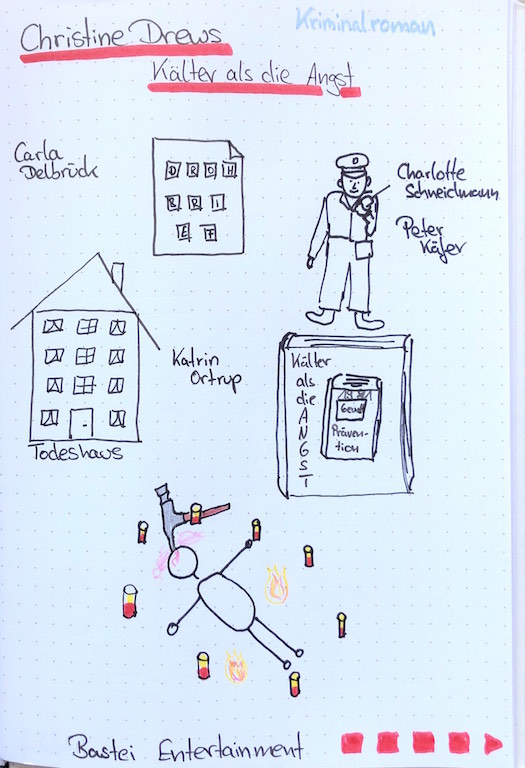 Christine Drews
Kriminalroman
Kälter als die Angst
Carla
Delbrück
DROH
BRI
EF
Charlotte
Schneidmann
Peter
Käfer
Katrin
Ortrup
Todeshaus
Kälter
als
die
A
N
G
S
T
Präven-
tion
Bastei Entertainment